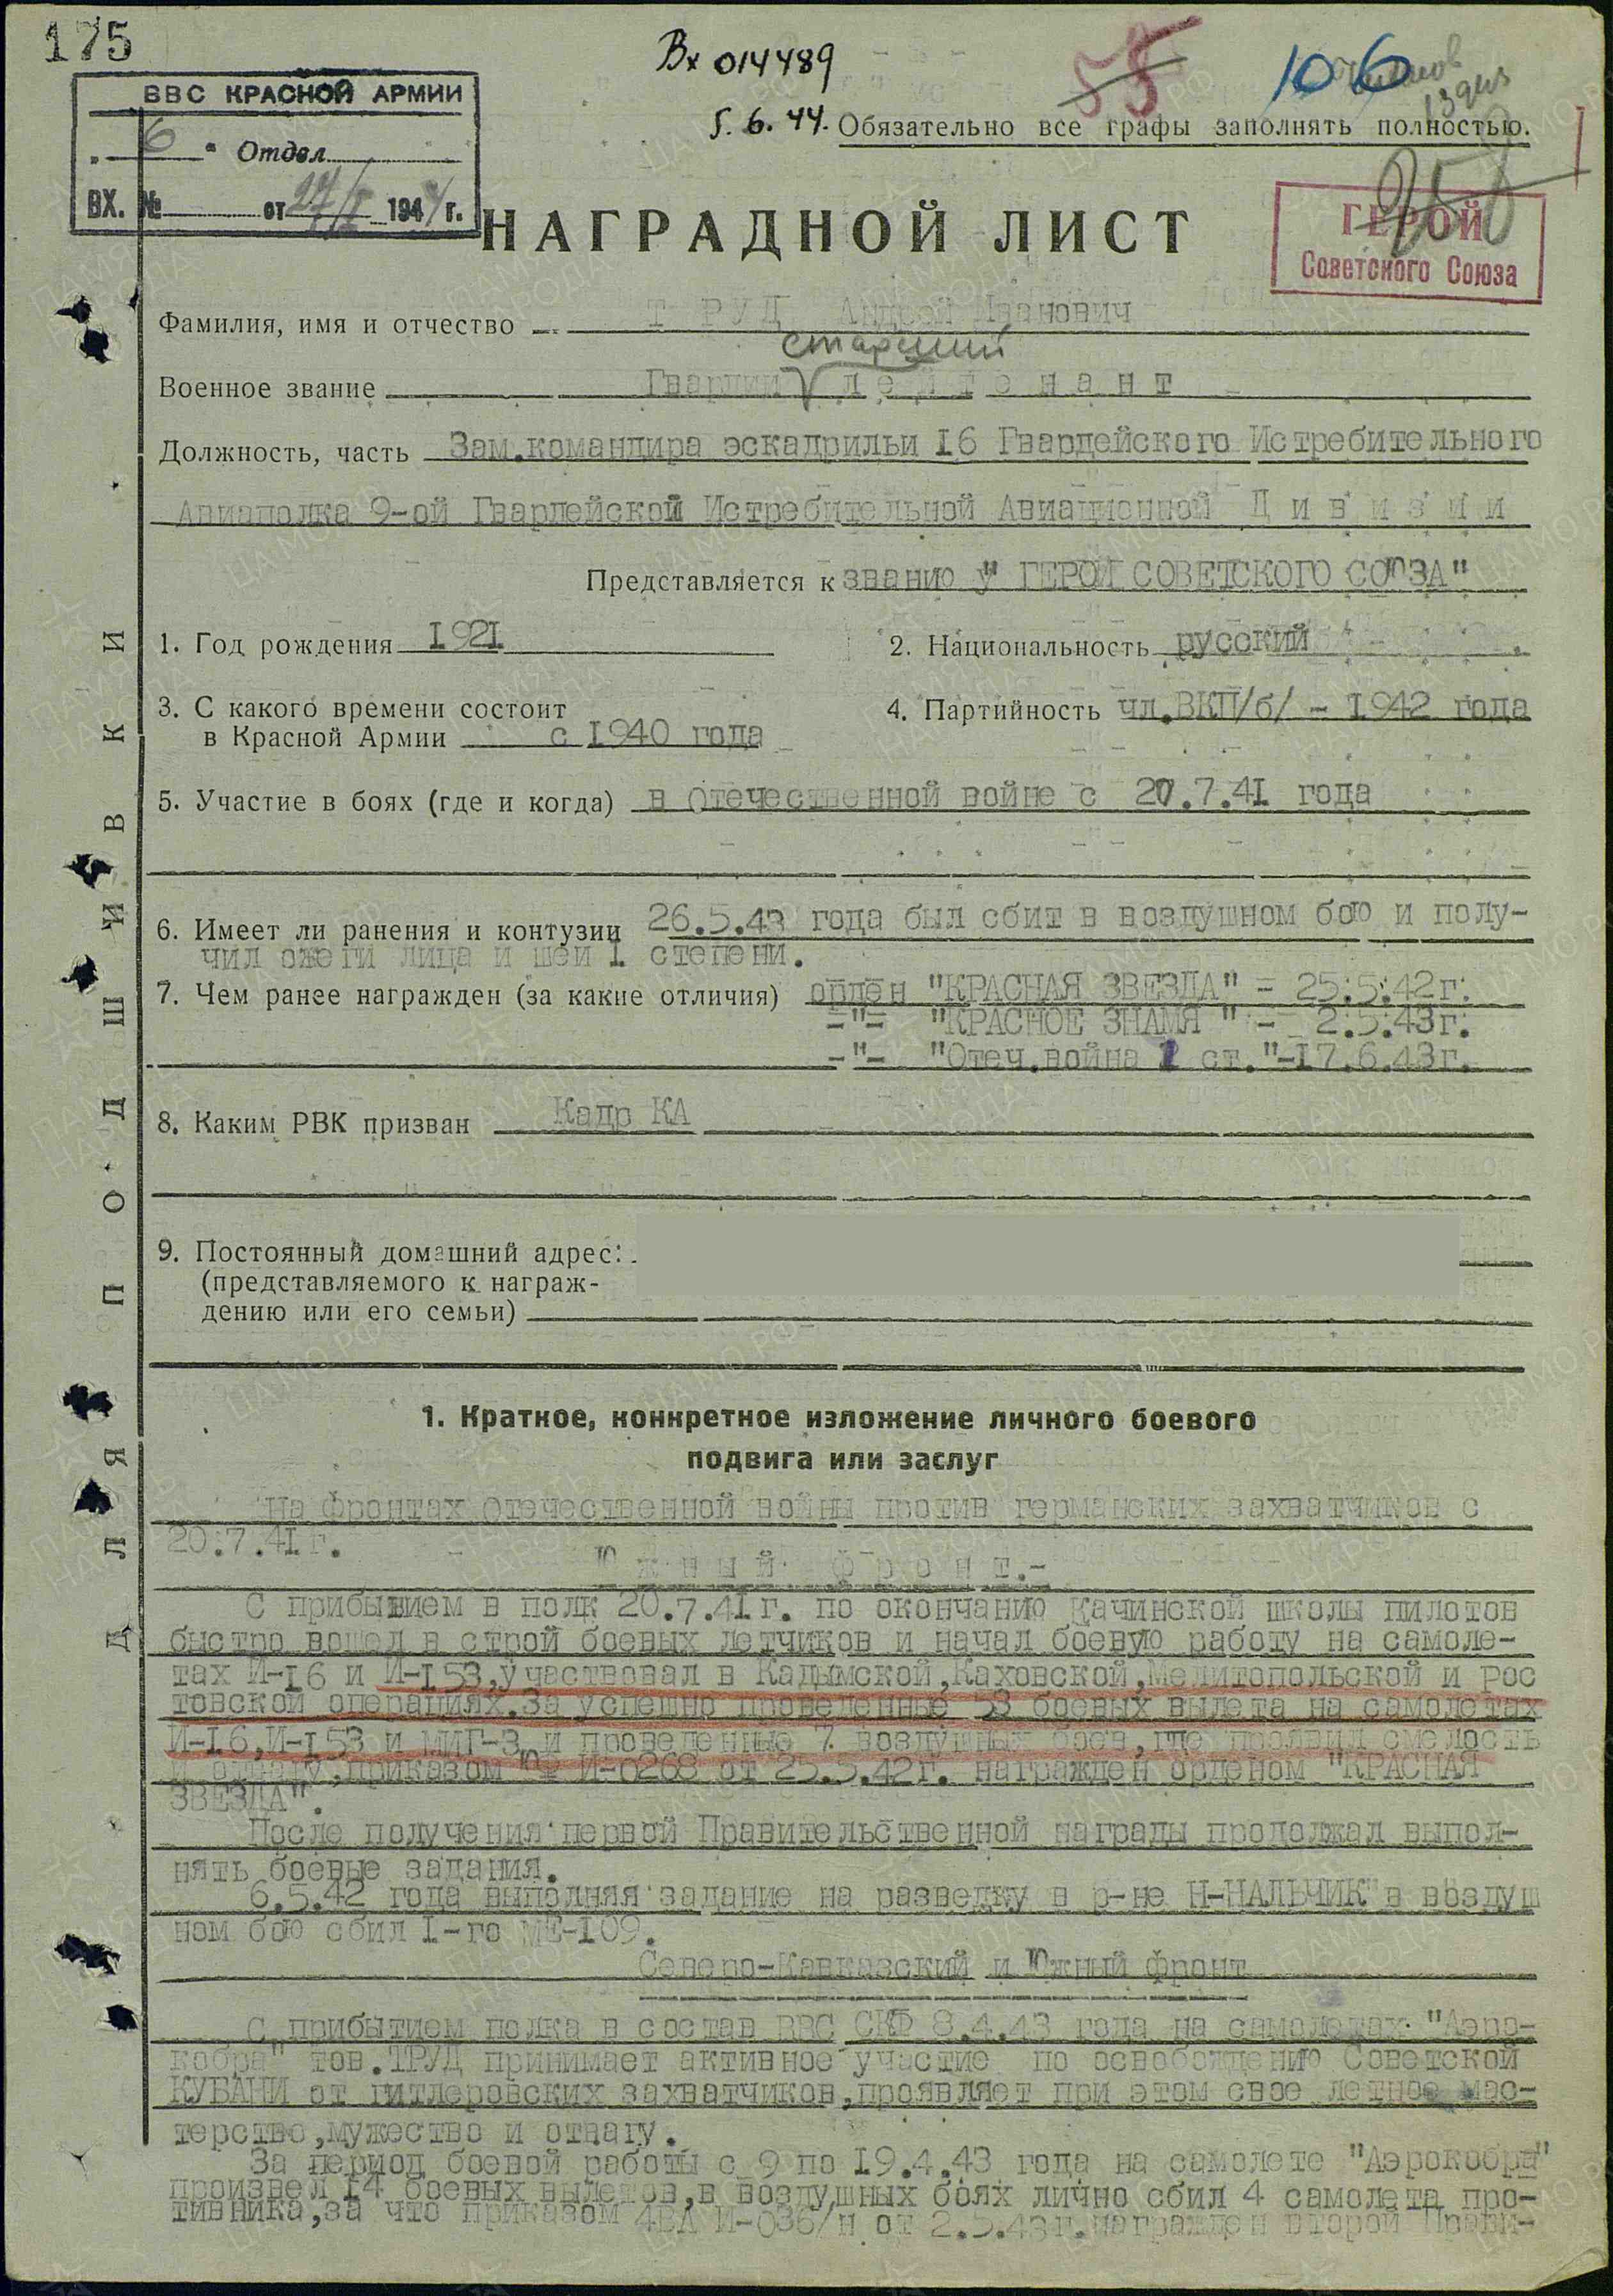 175
Вх 014489
55
106
13
5. 6. 44. Обязательно все графы заполнять полностью.
ВВС КРАСНОЙ АРМИИ
„ 6 “ Отдел
ВХ. № от 27/V 1944 г.
НАГРАДНОЙ ЛИСТ
ГЕРОЙ
Советского Союза
Фамилия, имя и отчество Т РУД Андрей Иванович
старший
Военное звание Гвардии лейтенант
Должность, часть Зам.командира эскадрильи 16 Гвардейского Истребительного
Авиаполка 9-ой Гвардейской Истребительной Авиационной Дивизии
Представляется к званию у" ГЕРОЙ СОВЕТСКОГО СОЮЗА"
1. Год рождения 1921
2. Национальность русский
3. С какого времени состоит
в Красной Армии с 1940 года
4. Партийность чл.ВКП/б/ - 1942 года
5. Участие в боях (где и когда) в Отечественной войне с 20.7.41 года
6. Имеет ли ранения и контузии 26.5.43 года был сбит в воздушном бою и полу-
чил ожеги лица и шеи I степени.
7. Чем ранее награжден (за какие отличия) орден "КРАСНАЯ ЗВЕЗДА" - 25.5.42г.
-"- "КРАСНОЕ ЗНАМЯ " - 2.5.43г.
-"- "Отеч.война 1 ст."-17.6.43г.
8. Каким РВК призван Кадр КА
9. Постоянный домашний адрес:
(представляемого к награж-
дению или его семьи)
ДЛЯ ПОДШИВКИ
1. Краткое, конкретное изложение личного боевого
подвига или заслуг
На фронтах Отечественной войны против германских захватчиков с
20.7.41г.
Южный фронт.-
С прибытием в полк 20.7.41г. по окончанию Качинской школы пилотов
быстро вошел в строй боевых летчиков и начал боевую работу на самоле-
тах И-16 и И-153,участвовал в Кадымской,Каховской,Мелитопольской и Рос
товской операциях.За успешно проведенные 53 боевых вылета на самолетах
И-16,И-153 и МИГ-3 и проведенные 7 воздушных боев,где проявил смелость
и отвагу,приказом ЮФ И-0268 от 25.5.42г. награжден орденом "КРАСНАЯ
ЗВЕЗДА".
После получения первой Правительственной награды продолжал выпол-
нять боевые задания.
6.5.42 года выполняя задание на разведку в р-не Н-НАЛЬЧИК в воздуш
ном бою сбил I-го МЕ-109.
Северо-Кавказский и Южный фронт
С прибытием полка в состав ВВС СКФ 8.4.43 года на самолетах "Аэро-
кобра" тов.ТРУД принимает активное участие по освобождению Советской
КУБАНИ от гитлеровских захватчиков,проявляет при этом свое летное мас-
терство,мужество и отвагу.
За период боевой работы с 9 по 19.4.43 года на самолете "Аэрокобра"
произвел 14 боевых вылетов,в воздушных боях лично сбил 4 самолета про-
тивника,за что приказом 4ВА И-036/н от 2.5.43г.награжден второй Прави-